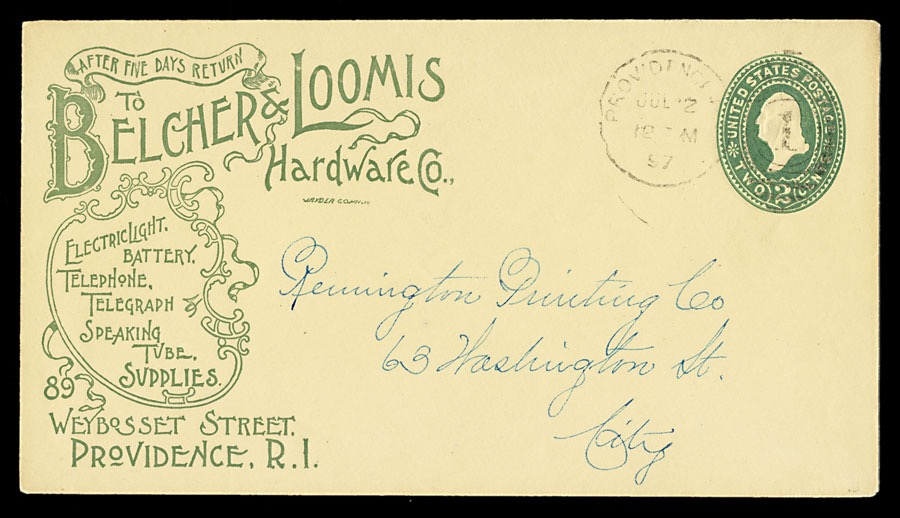 AFTER FIVE DAYS RETURN
TO
BELCHER & LOOMIS
Hardware Co.,
ELECTRIC LIGHT,
BATTERY,
TELEPHONE,
TELEGRAPH &
SPEAKING
TUBE,
SUPPLIES.
89
WEYBOSSET STREET,
PROVIDENCE, R.I.
PROVIDENCE
JUL 2
12 M
97
UNITED STATES POSTAGE
TWO
2
1
Remington Printing Co
63 Washington St.
City